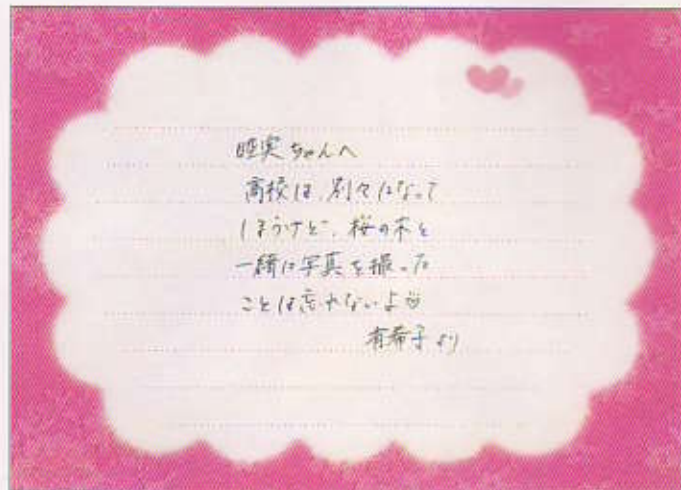 睦実ちゃんへ
高校は、別々になって
しまうけど、桜の木と
一緒に写真を撮った
ことは忘れないよ♡
有希子より